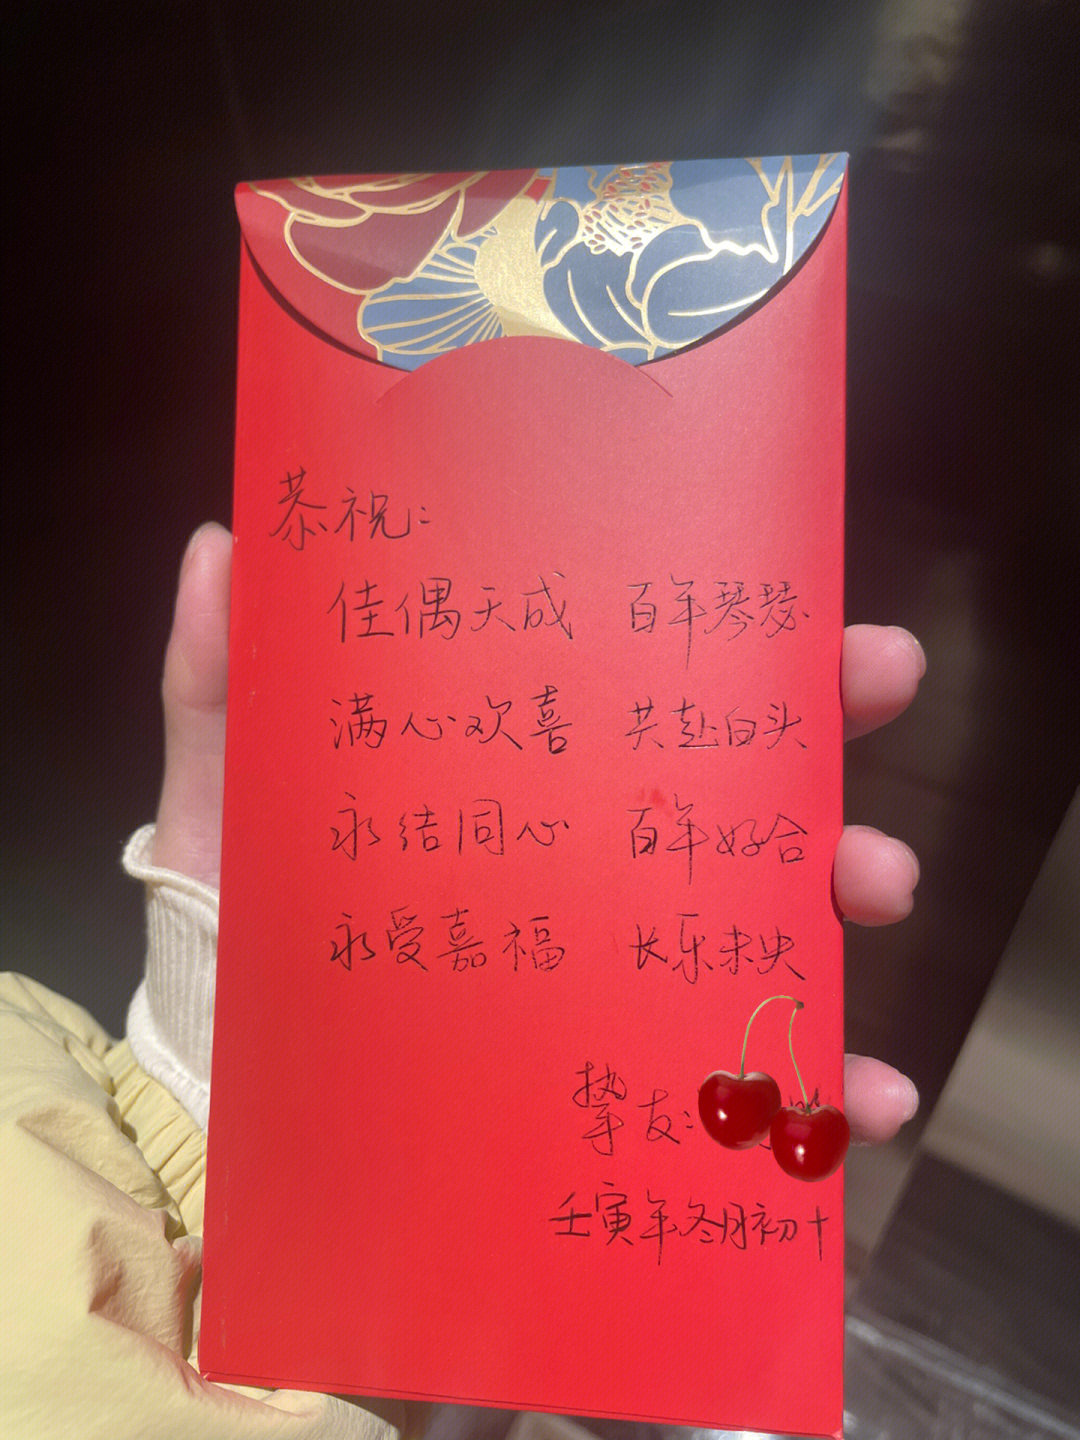 恭祝:
佳偶天成 百年琴瑟
满心欢喜 共赴白头
永结同心 百年好合
永受嘉福 长乐未央
挚友:
壬寅年冬月初十